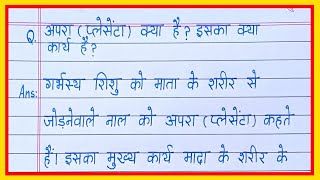 Q. अपरा (प्लेसेंटा) क्या है? इसका क्या
कार्य है?
Ans: गर्भस्थ शिशु को माता के शरीर से
जोड़नेवाले नाल को अपरा (प्लेसेंटा) कहते
हैं। इसका मुख्य कार्य मादा के शरीर के